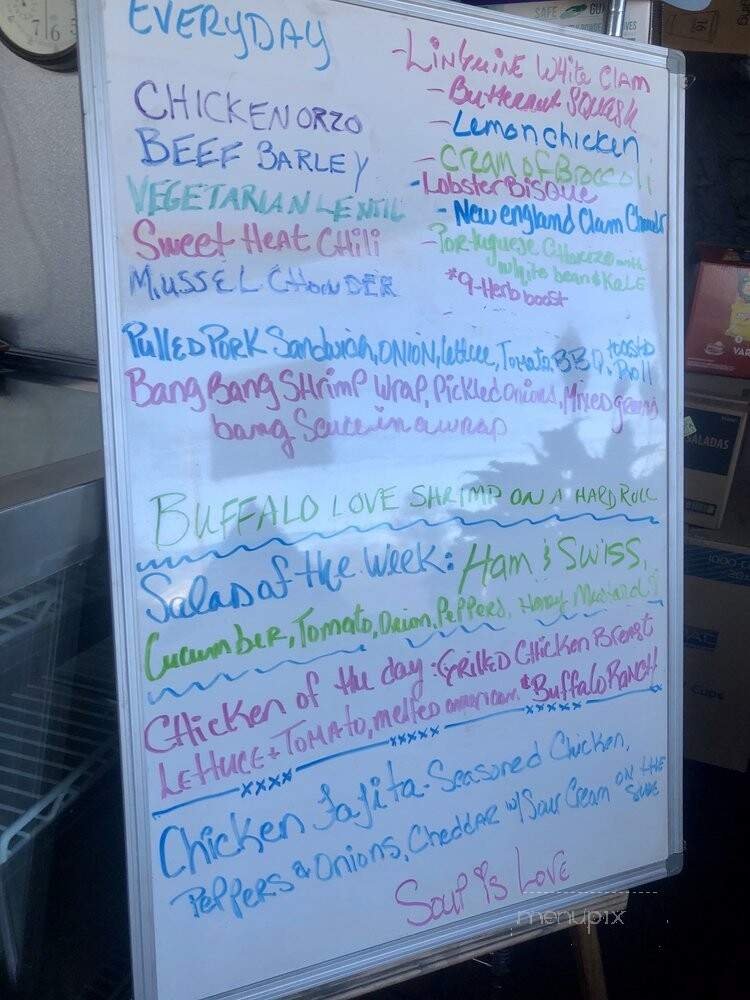 EVERYDAY
CHICKEN ORZO
BEEF BARLEY
VEGETARIAN LENTIL
SWEET HEAT CHILI
MUSSEL CHOWDER
-LINGUINE WHITE CLAM
- Butternut SQUASH
- Lemon chicken
- CREAM OF BROCCOLI
- Lobster Bisque
- New england Clam Chowdr
- Portuguese Chorizo with
white bean & KALE
*9-Herb boost
PULLED PORK Sandwich, ONION, lettuce, Tomato, BBQ, toasted Roll
Bang Bang SHRIMP Wrap, Pickled Onions, Mixed greens
bang Sauce in a wrap
BUFFALO LOVE SHRIMP ON A HARD ROLL
Salad of the Week: Ham & Swiss,
Cucumber, Tomato, Onion, Peppers, Honey Mustard
Chicken of the day: GRILLED Chicken Breast
LETTUCE + TOMATO, melted american & Buffalo RANCH
xxxx xxxxx xxxxx
Chicken Fajita - Seasoned Chicken,
PEPPERS & Onions, CHEDDAR w/ Sour Cream ON THE SIDE
Soup is Love
menupix
SAFE
SALADAS
7 6